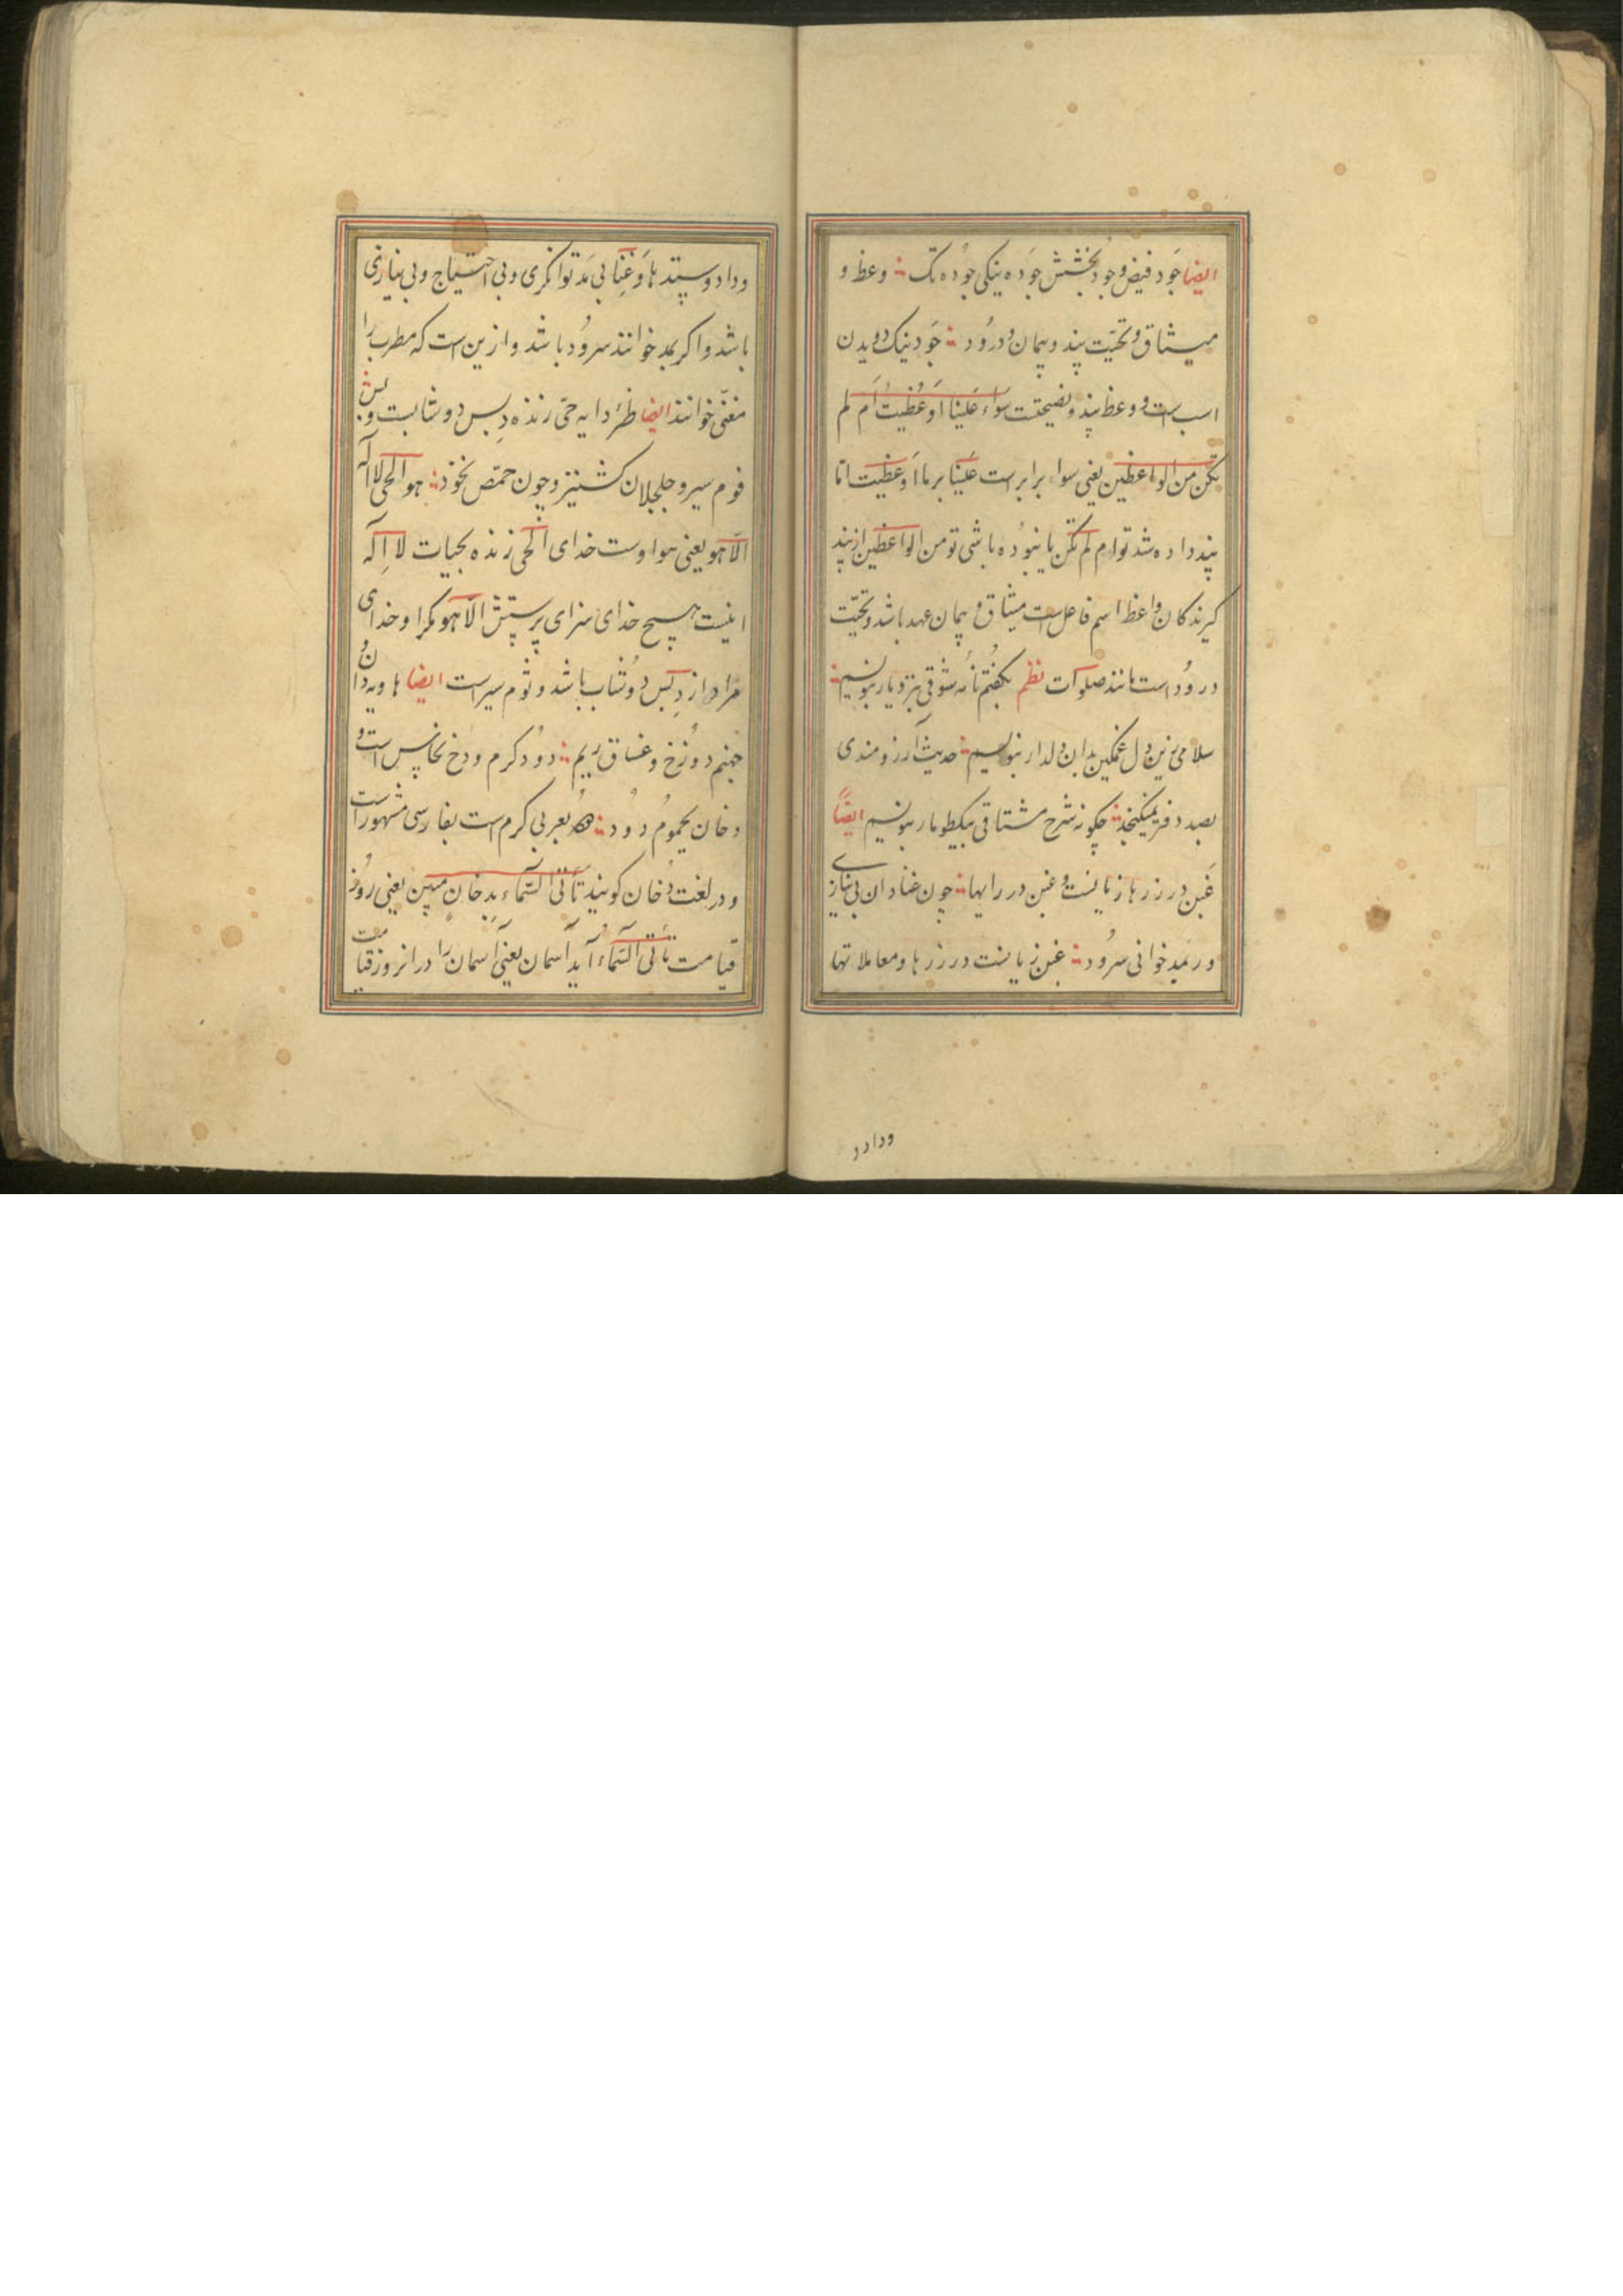 ایضا جَود فیض و جود بخشش جَوده نیکی جوُده تک ؞ وعظ و
میثاق و تحیّت پند و پیمان و درُود ؞ جَود نیک دویدن
اسب است و وعظ پند و نصیحتت سَواء عَلَینا اَوَعَظْتَ اَم لم
تکن من الواعظین یعنی سواء برابر است عَلَینا بر ما اَوَعظت اتا
پند داده شد تو ام لم تکن یا نبوُده باشی تو من الواعظین از پند
کیرندکان واعظ اسم فاعل است میثاق و پیمان عهد باشد و تحیّت
درُود است مانند صلوات نظم بکفتم نامه شوقی بنزد یار بنویسیم ؞
سلامی زین دل غمکین بدان دلدار بنویسیم ؞ حدیث آرزومندی
بصد دفتر نمیکنجد ؞ چکونه شرح مشتاقی بیکطومار بنویسیم ایضاً
غَبن در زرها زیانست و غبن در رایها ؞ چون غنا دان بی نیازی
ور بمد خوانی سرُود ؞ غبن زیانست در زرها و معاملاتها
ودادو
وداد و ستدها و غِنا بی مَد توانکری و بی احتیاج و بی نیازی
باشد و اکر بمد خوانند سرُود باشد و ازین است که مطرب را
مغنّی خوانند ایضا ظئر دایه حیّ زنده دِبس دوشابست و
فوم سیر و جلجلان کشنیز و چون حمّص نخود ؞ هو الحی لا اله
الّا هو یعنی هو اوست خدای الحی زنده بحیات لا اِله
نیست هیچ خدای سزای پرستش الّا هو مکر او خدای
مراد از دِبس دوُشاب باشد و ثوم سیر است ایضا هاویه دان و
جهنم دوُزخ و غساق ریم ؞ دود کرم ودخ نحاس است و
دخان یحموم دوُد ؞ بعربی کرم است بفارسی مشهور است
و در لغت دُخان کویند تَأتی السّماء بدخان مبین یعنی روز
قیامت تأتی السّماءُ آید آسمان یعنی آسمان را در انروز قیامت